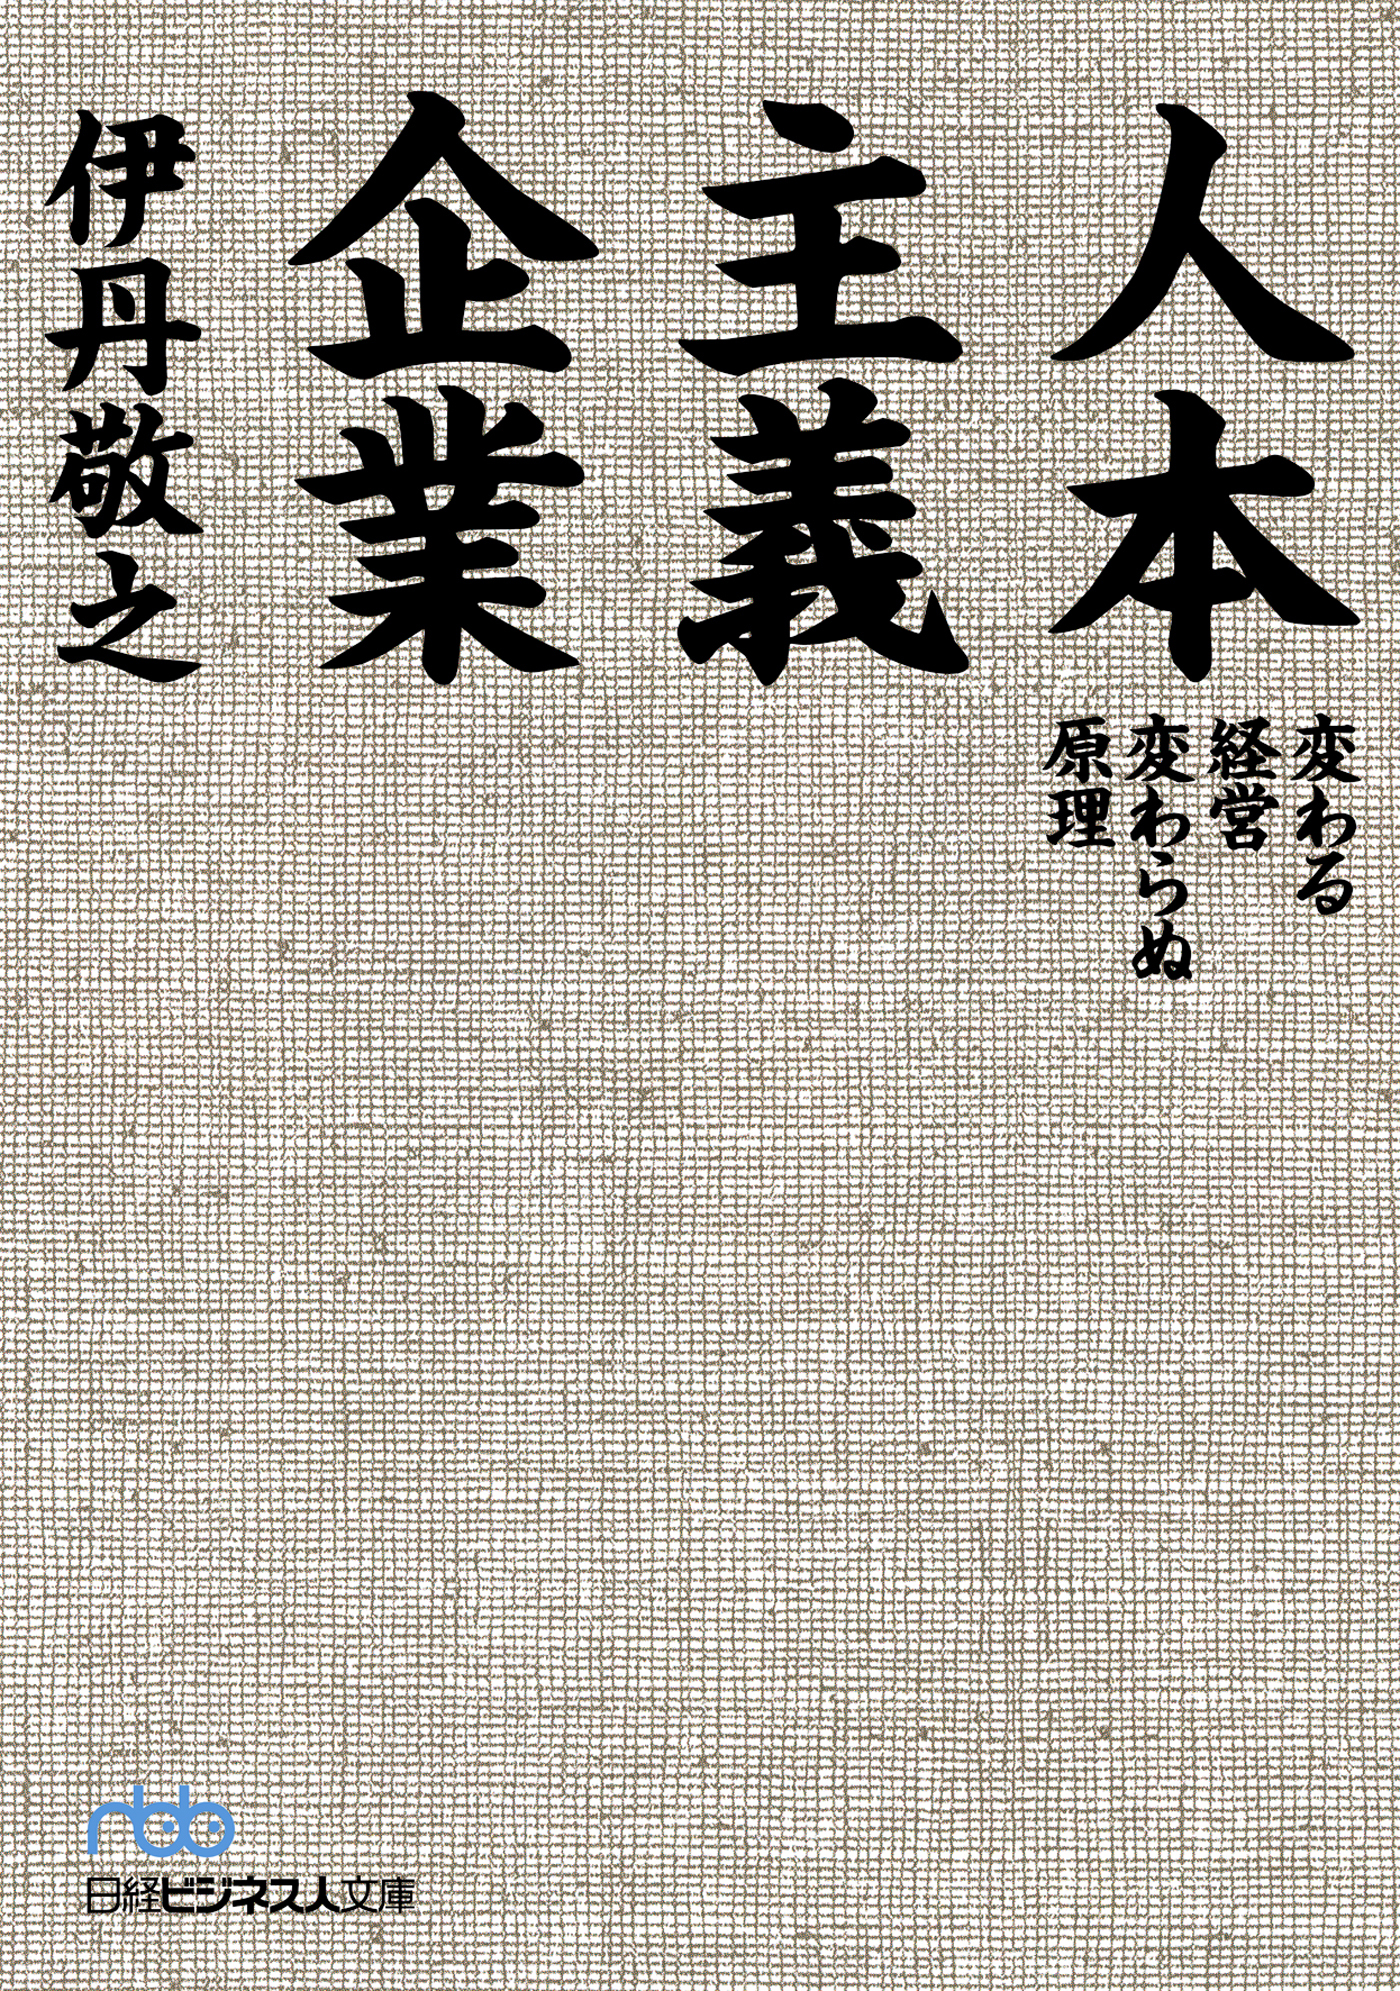 人本
主義
企業
変わる
経営
変わらぬ
原理
伊丹敬之
nbb
日経ビジネス人文庫